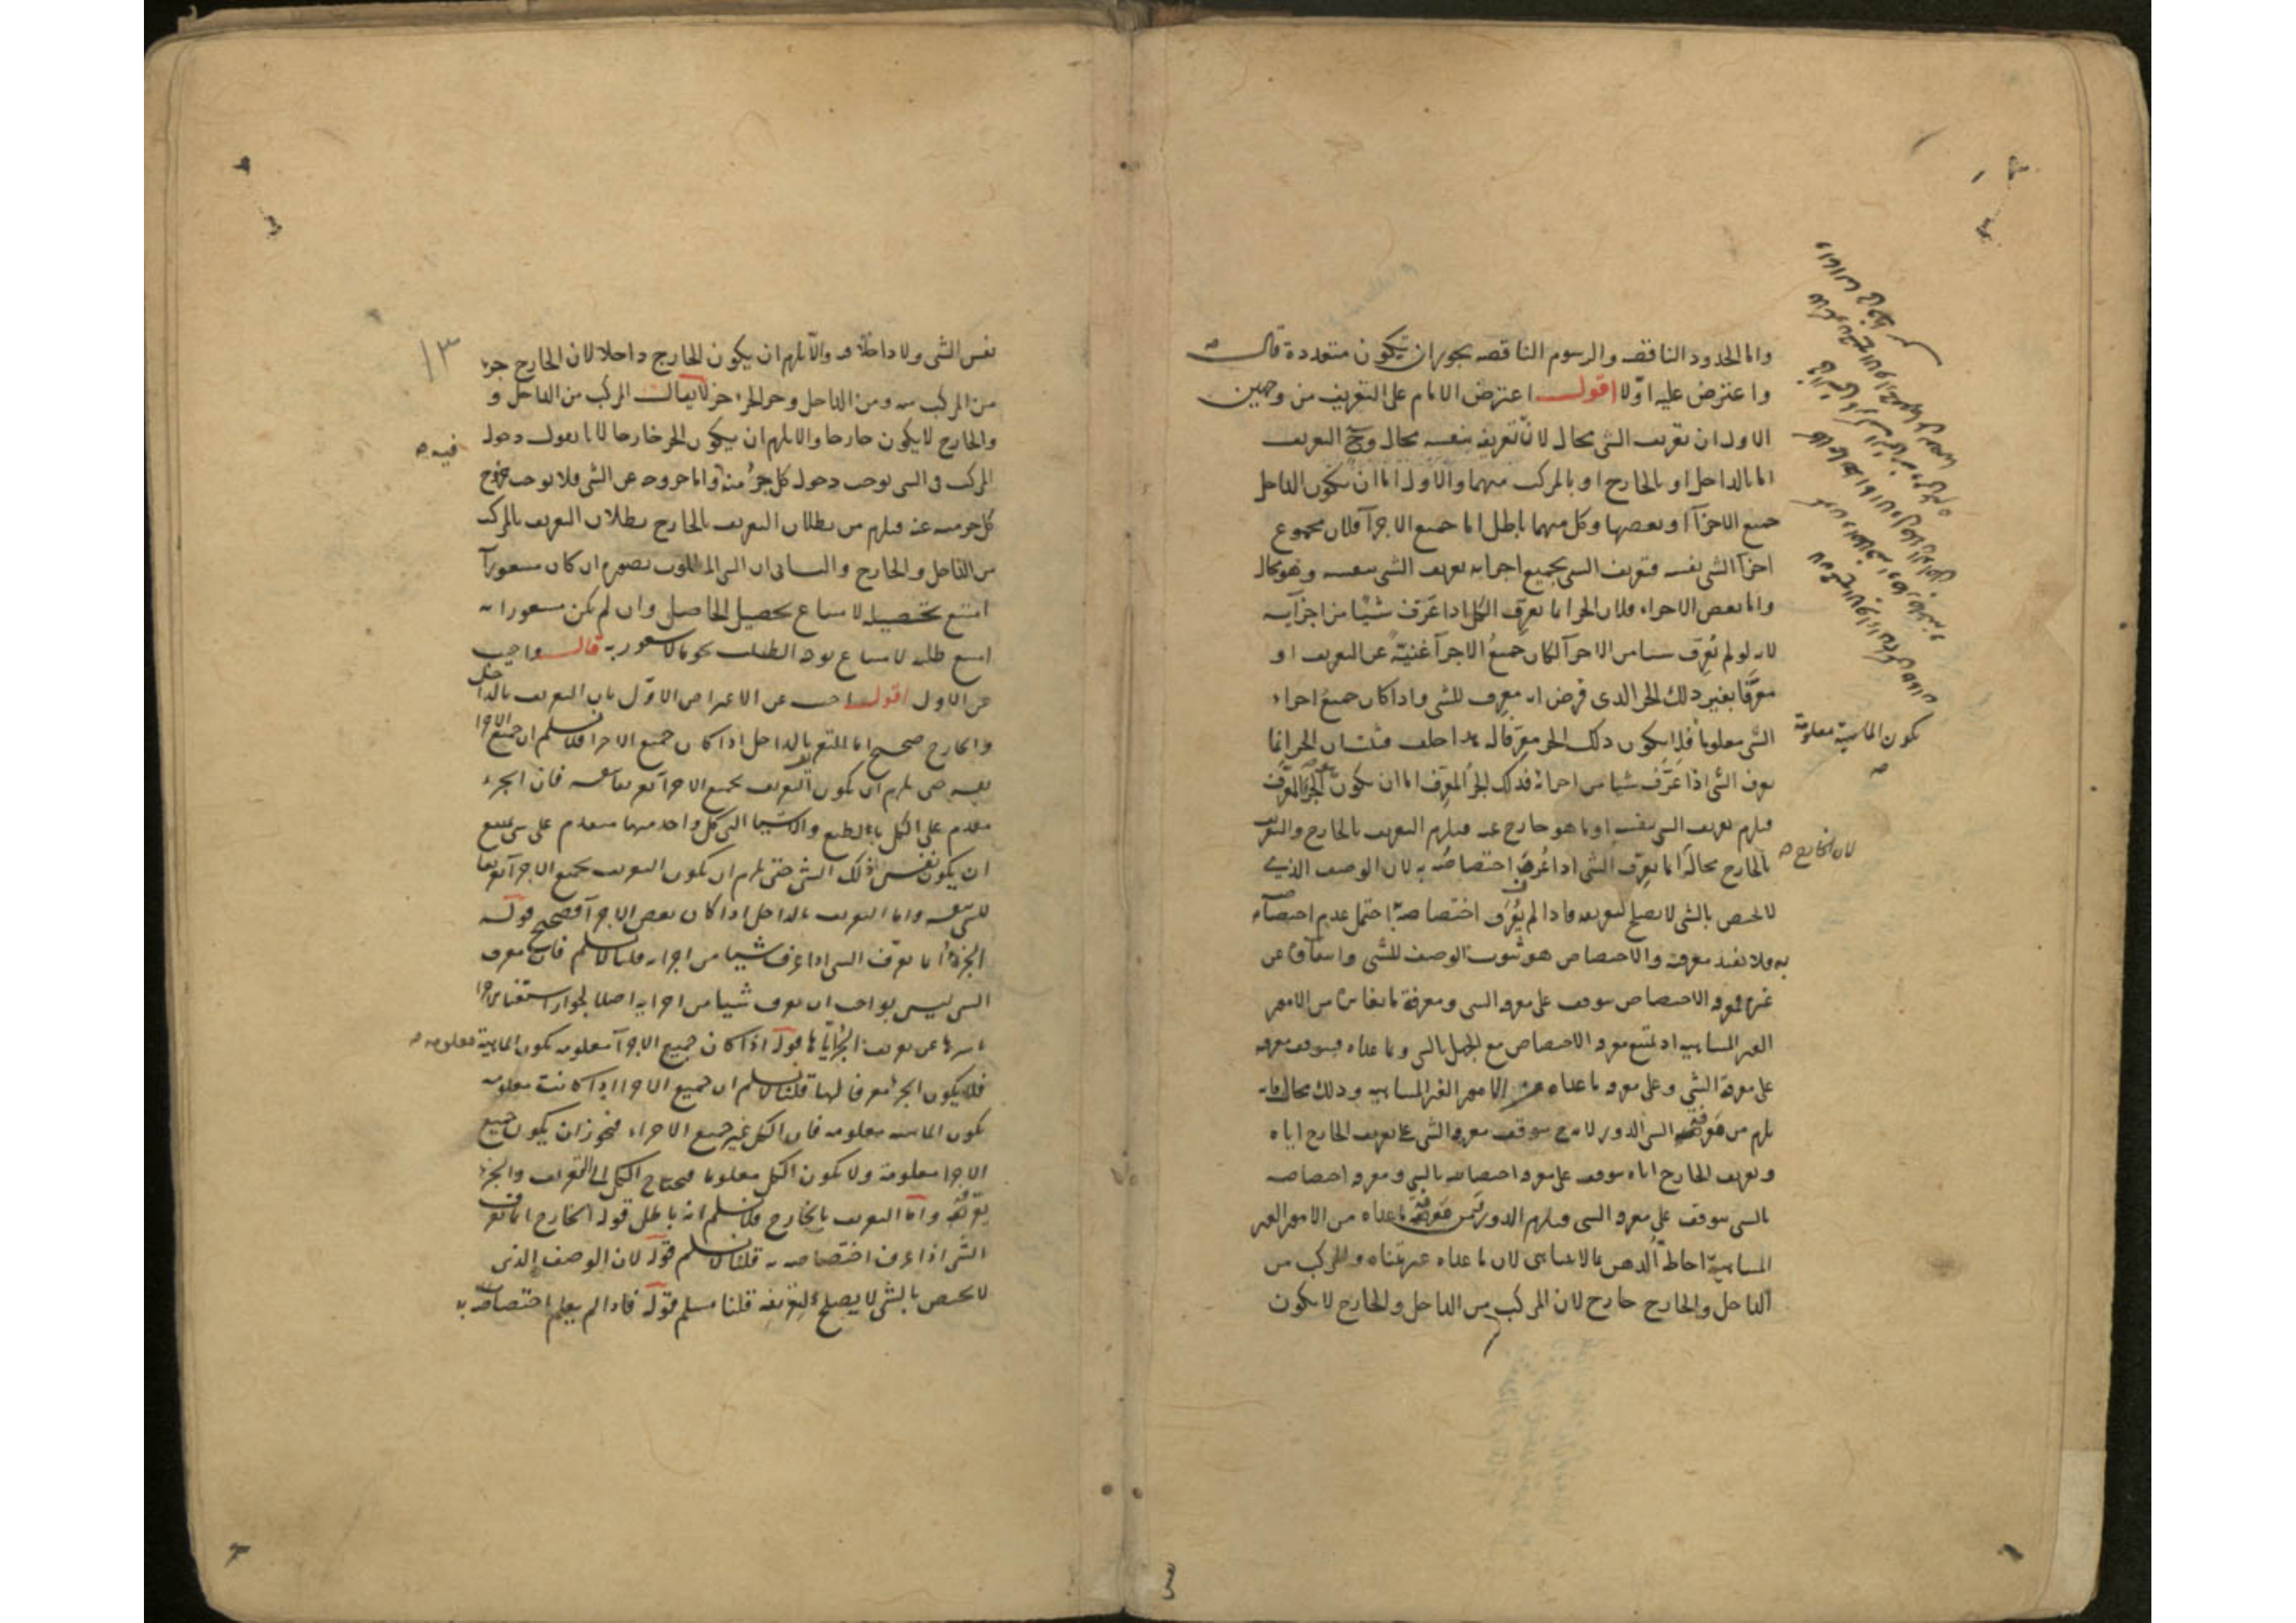 واما الحدود الناقصه والرسوم الناقصه يجوز ان يكون متعددة قال
واعترض عليه اوّلا اقول اعترض الامام على التعريف من وجهين
الاول ان تعريف الشى محال لانّ تعريفه بنفسه محال وح التعريف
اما بالداخل او بالخارج او بالمركب منهما والاول اما ان يكون الداخل
جميع الاجزآ او بعضها وكل منهما باطل اما جميع الاجزآ فلان مجموع
اجزآ الشى نفسه فتعريف الشى بجميع اجزايه تعريف الشى بنفسه وهو محال
واما بعض الاجزاء فلان الجزء انما يعرف الكل اذا عَرّف شيًا من اجزآيه
لانه لو لم يُعرف شيا من الاجزآ لكان جميعُ الاجزآ غنيّة عن التعريف او
معرَّفا بغير ذلك الجزء الذى فرض انه معرف للشى واذا كان جميع اجزاء
الشى معلوما فلا يكون ذلك الجزء معرّفا له هذا خلف فثبت ان الجزء انما
تكون الماهية معلومة
يعرف الشى اذا عَرَّف شيا من اجزائه فذلك الجزُ المعرَّف اما ان يكون الجزءَ المعرِّف
فيلزم تعريف الشى بنفسه او ما هو خارج عنه فيلزم التعريف بالخارج والتعريف
بالخارج محال انما يعرّف الشى اذا عُرف اختصاصُه به لان الوصف الذى
لان الخارج
لا يختص بالشى لا يصلح لتعريفه فاذا لم يُعْرَف اختصاصه احتمل عدم اختصاصه
به فلا يفيد معرفته والاختصاص هو ثبوت الوصف للشى وانتفاؤه عن
غيره فمعرفة الاختصاص يتوقف على معرفة الشى ومعرفة ما يغايره من الامور
الغير المتناهيه اذ يمتنع معرفة الاختصاص مع الجهل بالشى وما عداه فيتوقف معرفته
على معرفة الشى وعلى معرفة ما عداه من الامور الغير المتناهيه وذلك محال فانه
يلزم من معرفة الشى الدور لانه ح يتوقف معرفة الشى على تعريف الخارج اياه
وتعريف الخارج اياه يتوقف على معرفة اختصاصه بالشى ومعرفة اختصاصه
بالشى يتوقف على معرفة الشى فيلزم الدور ومن معرفة ما عداه من الامور الغير
المتناهية احاطة الذهن بما لا يتناهى لان ما عداه غير متناه والمركب من
الداخل والخارج خارج لان المركب من الداخل والخارج لا يكون
١٣
نفس الشى ولا داخلا فيه والّا يلزم ان يكون الخارج داخلا لان الخارج جزء
من المركب منه ومن الداخل وجزء الجزء جزء لا يقال المركب من الداخل و
والخارج لا يكون خارجا والا يلزم ان يكون الجزء خارجا لانا نقول دخول
فيه
المركب فى الشى يوجب دخول كل جزءٍ منه واما خروجه عن الشى فلا يوجب خروج
كل جزء منه عنه فيلزم من بطلان التعريف بالخارج بطلان التعريف بالمركب
من الداخل والخارج والثانى ان الشى المطلوب تصوره ان كان مشعورآ
امتنع تحصيله لامتناع تحصيل الحاصل وان لم يكن مشعورا به
امتنع طلبه لامتناع توجه الطلب نحو ما لا شعور به قال واجيب
عن الاول اقول اجيب عن الاعتراض الاوّل بان التعريف بالداخل
والخارج صحيح اما التعريف بالداخل اذا كان جميع الاجزا فلا نسلم ان جميع الاجزا
نفسه حتى يلزم ان يكون التعريف بجميع الاجزآ تعريفا بنفسه فان الجزء
متقدم على الكل بالطبع والاشيا التى كل واحد منها متقدم على شى يمتنع
ان يكون نفس ذلك الشى حتى يلزم ان يكون التعريف بجميع الاجزآ تعريفا
للشى بنفسه واما التعريف بالداخل اذا كان بعض الاجزآ فصحيح قوله
الجزءُ انما يعرّف الشى اذا عرف شيا من اجزايه قلنا لا نسلم فان معرف
الشى ليس بواجب ان يعرف شيا من اجزايه اصلا لجواز استغناء الاجزا
باسرها عن تعريف الجزء اياها قوله اذا كان جميع الاجزآ معلومه تكون الماهية معلومه
فلا يكون الجزء معرفا لها قلنا لا نسلم ان جميع الاجزا اذا كانت معلومه
تكون الماهيه معلومه فان الكل غير جميع الاجزاء فيجوز ان يكون جميع
الاجزا معلومة ولا يكون الكل معلوما فيحتاج الكل الى التعريف والجزء
يعرّفه واما التعريف بالخارج فلا نسلم انه باطل قوله الخارج انما يعرف
الشى اذا عرف اختصاصه به قلنا لا نسلم قوله لان الوصف الذى
لا يختص بالشى لا يصلح لتعريفه قلنا مسلم قوله فاذا لم يعلم اختصاصه به